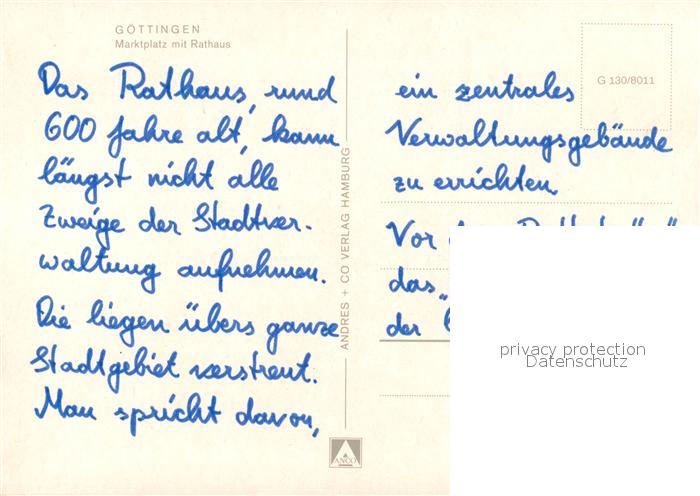 GÖTTINGEN
Marktplatz mit Rathaus
Das Rathaus, rund
600 Jahre alt, kann
längst nicht alle
Zweige der Stadtver-
waltung aufnehmen.
Die liegen übers ganze
Stadtgebiet verstreut.
Man spricht davon,
ANDRES + CO VERLAG HAMBURG
ANCO
G 130/8011
ein zentrales
Verwaltungsgebäude
zu errichten.
Vor
das „
der
privacy protection
Datenschutz